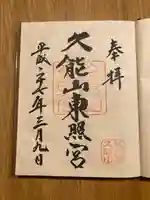 奉拝
久能山東照宮
平成二十七年三月九日